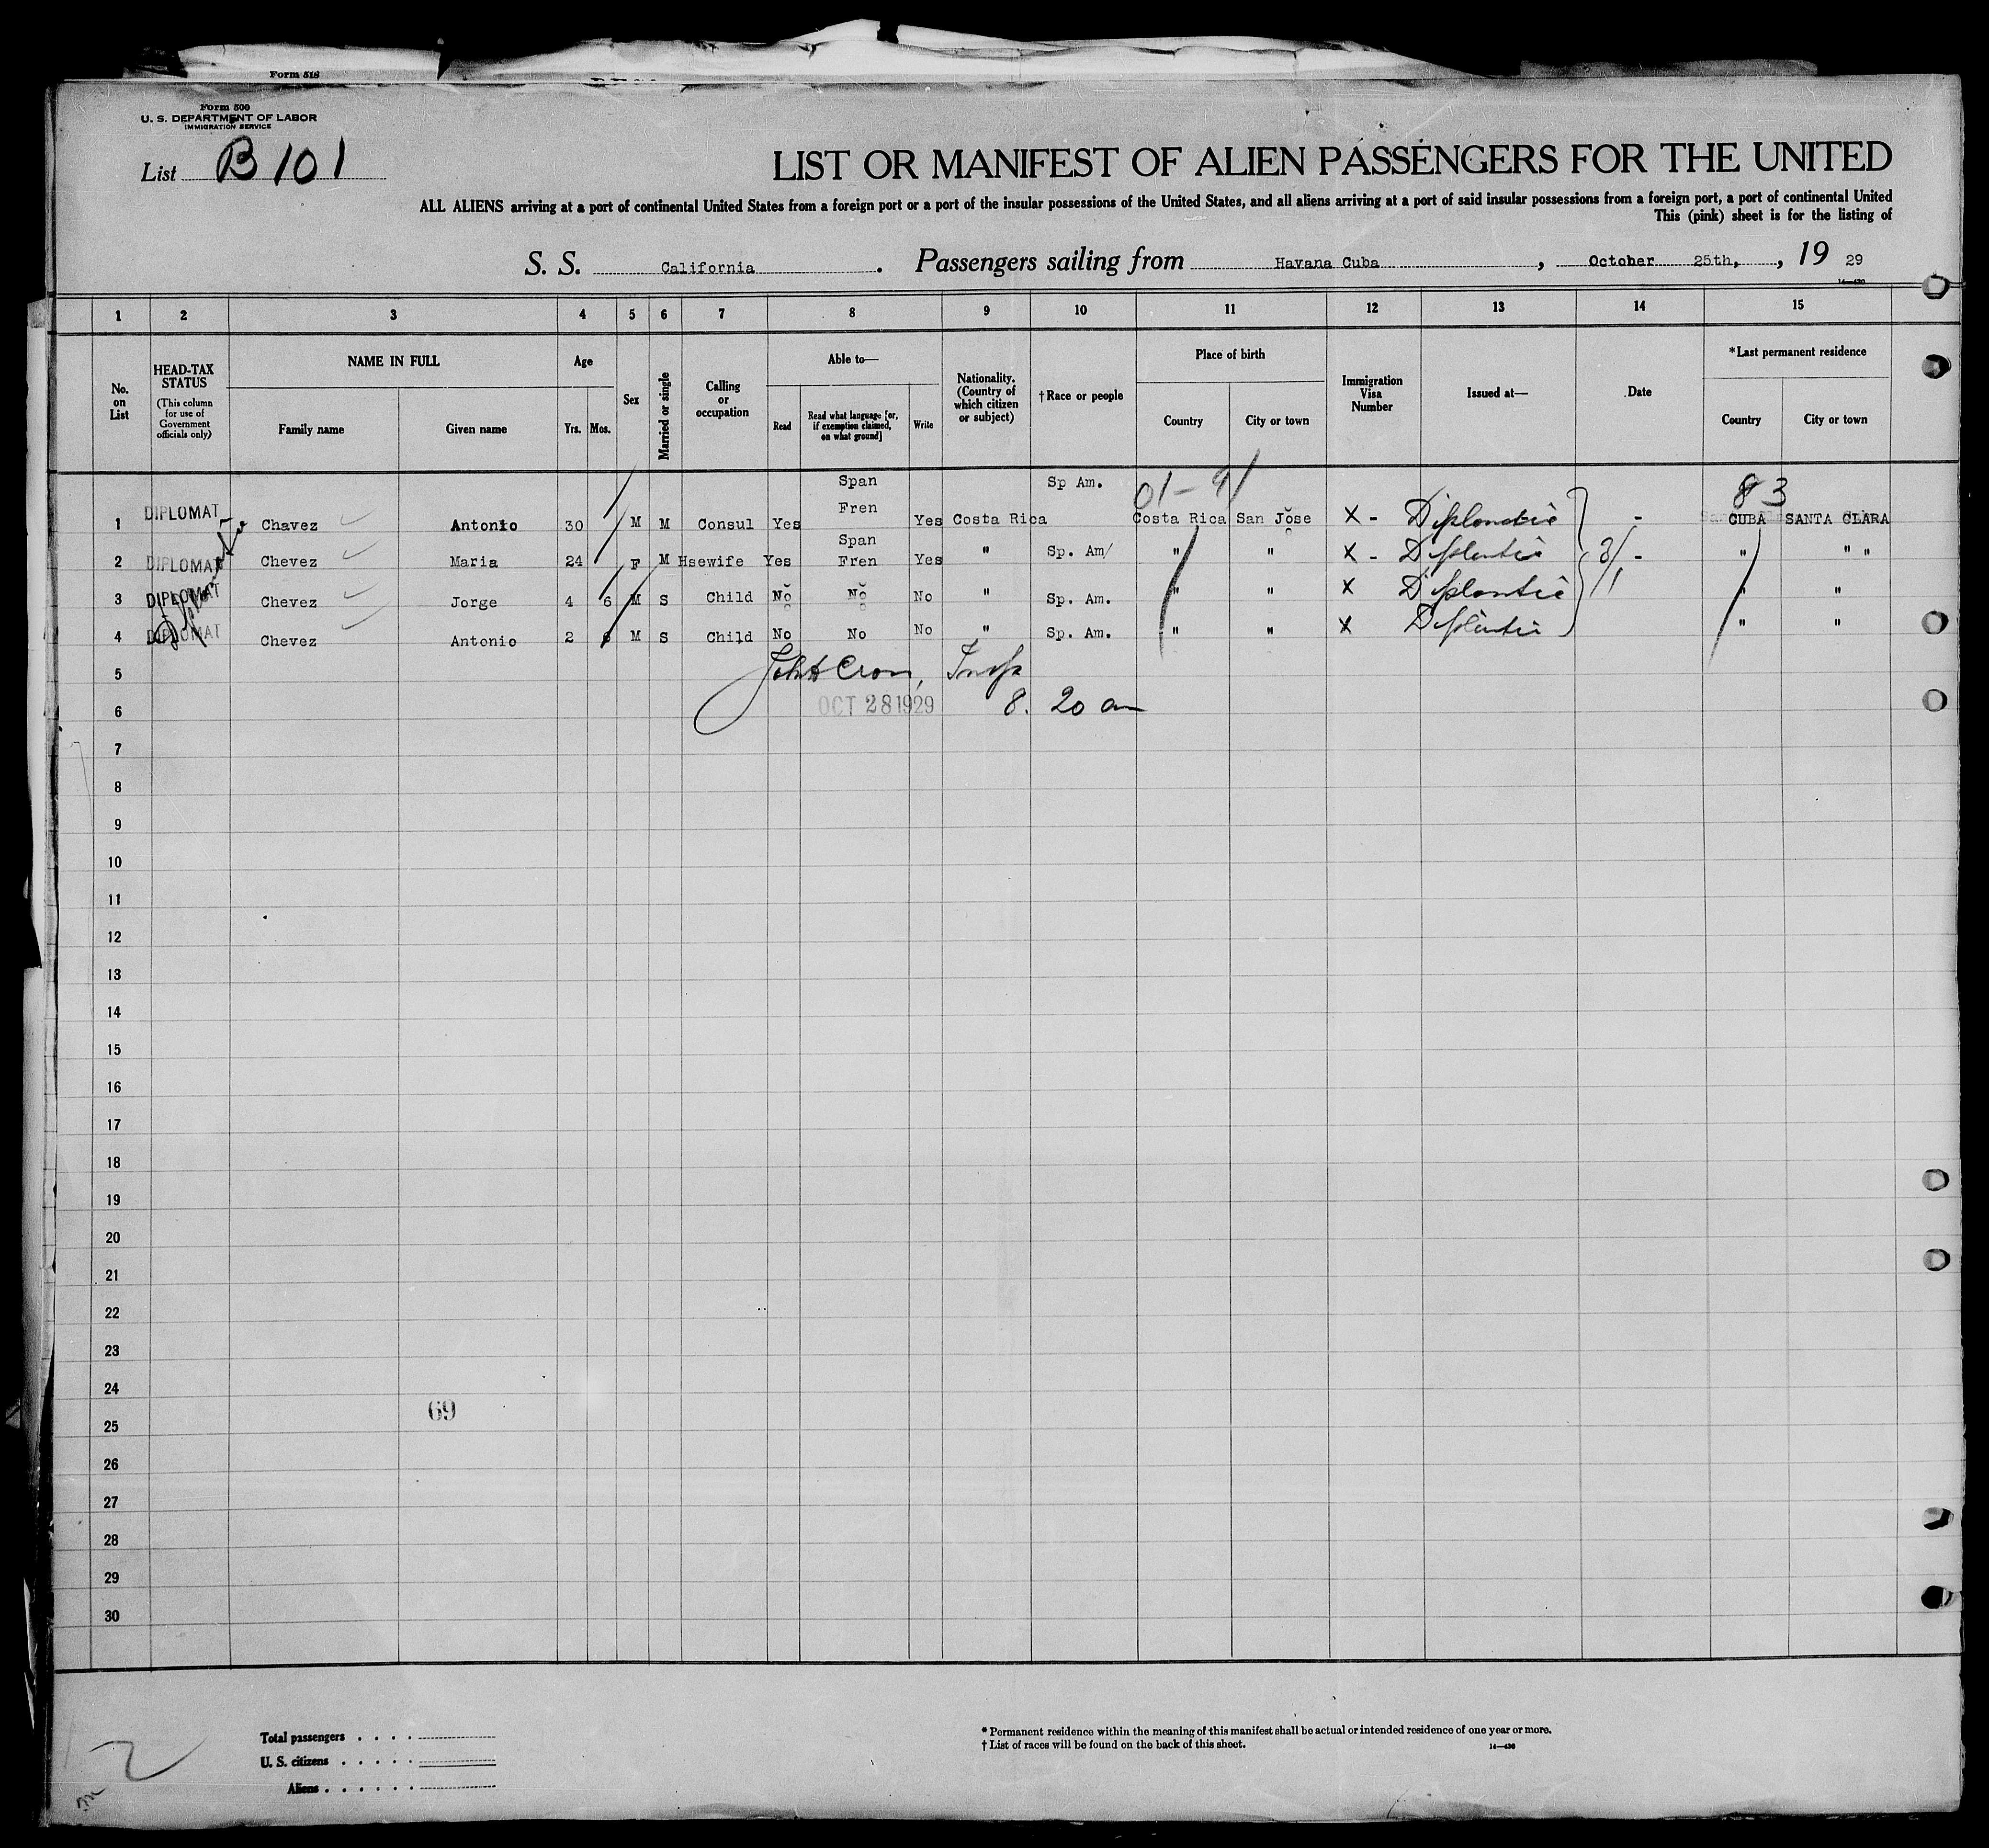 Form 518
Form 500
U. S. DEPARTMENT OF LABOR
IMMIGRATION SERVICE
List B 101
LIST OR MANIFEST OF ALIEN PASSENGERS FOR THE UNITED
ALL ALIENS arriving at a port of continental United States from a foreign port or a port of the insular possessions of the United States, and all aliens arriving at a port of said insular possessions from a foreign port, a port of continental United
This (pink) sheet is for the listing of
S. S. California. Passengers sailing from Havana Cuba, October 25th, , 19 29
14—430
1 2 3 4 5 6 7 8 9 10 11 12 13 14 15
No. on List
HEAD-TAX STATUS
(This column for use of Government officials only)
NAME IN FULL
Family name
Given name
Age
Yrs. Mos.
Sex
Married or single
Calling or occupation
Able to—
Read
Read what language [or, if exemption claimed, on what ground]
Write
Nationality. (Country of which citizen or subject)
†Race or people
Place of birth
Country
City or town
Immigration Visa Number
Issued at—
Date
*Last permanent residence
Country
City or town
Span Sp Am. 01-91 83
Fren
1 DIPLOMAT Chavez Antonio 30 M M Consul Yes Yes Costa Rica Costa Rica San Jose X - Diplomatic - CUBA SANTA CLARA
Span
2 DIPLOMAT Chevez Maria 24 F M Hsewife Yes Fren Yes " Sp. Am/ " " X - Diplomatic - " " "
3 DIPLOMAT Chevez Jorge 4 6 M S Child No No No " Sp. Am. " " X Diplomatic " "
4 DIPLOMAT Chevez Antonio 2 6 M S Child No No No " Sp. Am. " " X Diplomatic " "
5
OCT 28 1929 8. 20 am
6
7
8
9
10
11
12
13
14
15
16
17
18
19
20
21
22
23
24
69
25
26
27
28
29
30
Total passengers
U. S. citizens
Aliens
* Permanent residence within the meaning of this manifest shall be actual or intended residence of one year or more.
† List of races will be found on the back of this sheet.
14—430
2